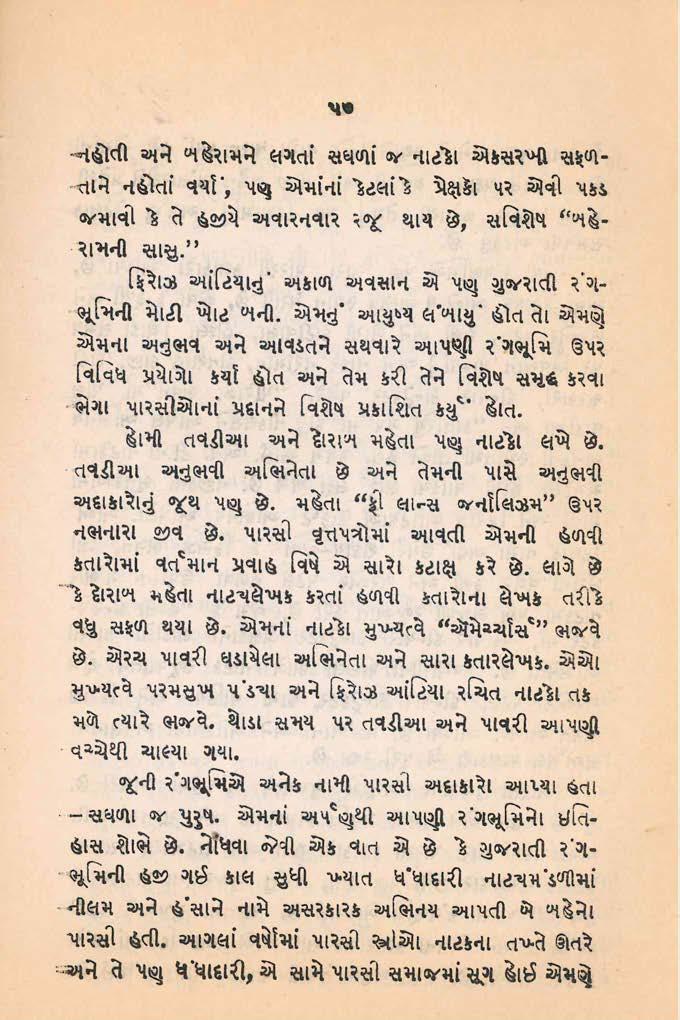 ૫૭
નહોતી અને બહેરામને લગતાં સઘળાં જ નાટકો એકસરખી સફળ-
તાને નહોતાં વર્યાં, પણ એમાંનાં કેટલાંકે પ્રેક્ષકો પર એવી પકડ
જમાવી કે તે હજીયે અવારનવાર રજૂ થાય છે, સવિશેષ “બહે-
રામની સાસુ.”
ફિરોઝ આંટિયાનું અકાળ અવસાન એ પણ ગુજરાતી રંગ-
ભૂમિની મોટી ખોટ બની. એમનું આયુષ્ય લંબાયું હોત તો એમણે
એમના અનુભવ અને આવડતને સથવારે આપણી રંગભૂમિ ઉપર
વિવિધ પ્રયોગો કર્યા હોત અને તેમ કરી તેને વિશેષ સમૃદ્ધ કરવા
ભેગા પારસીઓનાં પ્રદાનને વિશેષ પ્રકાશિત કર્યું હોત.
હોમી તવડીઆ અને દોરાબ મહેતા પણ નાટકો લખે છે.
તવડીઆ અનુભવી અભિનેતા છે અને તેમની પાસે અનુભવી
અદાકારોનું જૂથ પણ છે. મહેતા “ફ્રી લાન્સ જર્નાલિઝમ” ઉપર
નભનારા જીવ છે. પારસી વૃત્તપત્રોમાં આવતી એમની હળવી
કતારોમાં વર્તમાન પ્રવાહ વિષે એ સારો કટાક્ષ કરે છે. લાગે છે
કે દોરાબ મહેતા નાટ્યલેખક કરતાં હળવી કતારોના લેખક તરીકે
વધુ સફળ થયા છે. એમનાં નાટકો મુખ્યત્વે “ઍમેચ્ચર્સ” ભજવે
છે. એરચ પાવરી ઘડાયેલા અભિનેતા અને સારા કતારલેખક. એઓ
મુખ્યત્વે પરમસુખ પંડ્યા અને ફિરોઝ આંટિયા રચિત નાટકો તક
મળે ત્યારે ભજવે. થોડા સમય પર તવડીઆ અને પાવરી આપણી
વચ્ચેથી ચાલ્યા ગયા.
જૂની રંગભૂમિએ અનેક નામી પારસી અદાકારો આપ્યા હતા
— સઘળા જ પુરુષ. એમનાં અર્પણુથી આપણી રંગભૂમિનો ઇતિ-
હાસ શોભે છે. નોંધવા જેવી એક વાત એ છે કે ગુજરાતી રંગ-
ભૂમિની હજી ગઈ કાલ સુધી ખ્યાત ધંધાદારી નાટ્યમંડળીમાં
નીલમ અને હંસાને નામે અસરકારક અભિનય આપતી બે બહેનો
પારસી હતી. આગલાં વર્ષોમાં પારસી સ્ત્રીઓ નાટકના તખ્તે ઊતરે
અને તે પણ ધંધાદારી, એ સામે પારસી સમાજમાં સૂગ હોઈ એમણે